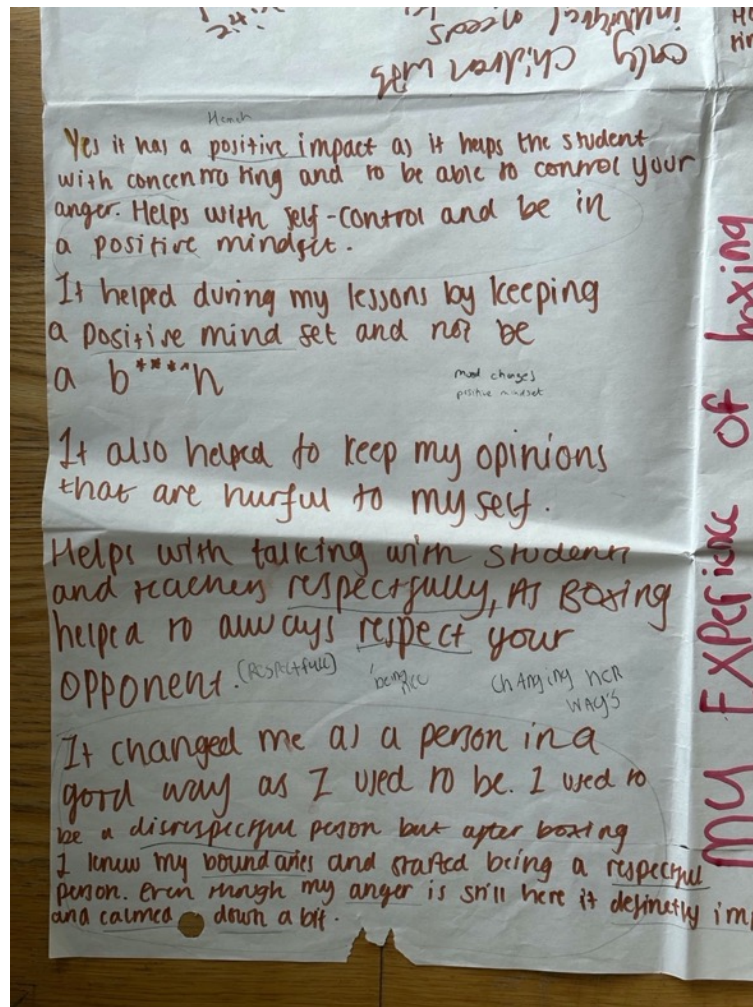 only children with
individual needs
Yes it has a positive impact as it helps the student
with concentrating and to be able to control your
anger. Helps with self-control and be in
a positive mindset.
It helped during my lessons by keeping
a positive mind set and not be
a b****h
mood changes
positive mindset
It also helped to keep my opinions
that are hurful to my self.
Helps with talking with students
and teachers respectfully, As Boxing
helped to always respect your
opponent. (RESPECTfull)
being nice
CHANging HER
WAY'S
It changed me as a person in a
good way as I used to be. I used to
be a disrespectful person but after boxing
I knew my boundaries and started being a respectful
person. Even though my anger is still here it definetly imp
and calmed down a bit.
My EXPERience of boxing